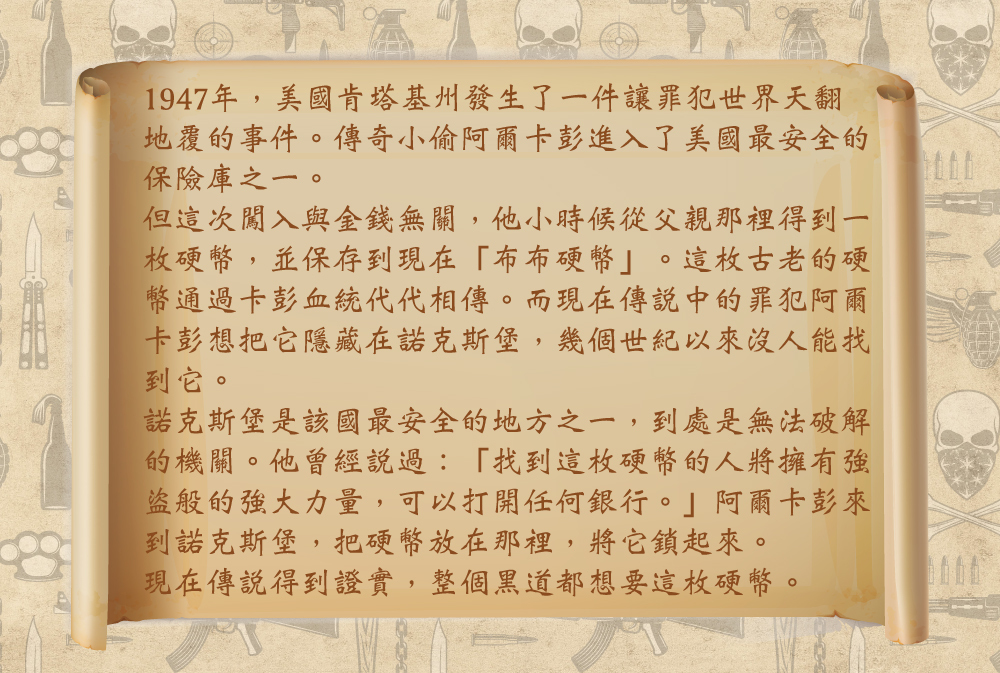 1947年，美國肯塔基州發生了一件讓罪犯世界天翻
地覆的事件。傳奇小偷阿爾卡彭進入了美國最安全的
保險庫之一。
但這次闖入與金錢無關，他小時候從父親那裡得到一
枚硬幣，並保存到現在「布布硬幣」。這枚古老的硬
幣通過卡彭血統代代相傳。而現在傳說中的罪犯阿爾
卡彭想把它隱藏在諾克斯堡，幾個世紀以來沒人能找
到它。
諾克斯堡是該國最安全的地方之一，到處是無法破解
的機關。他曾經說過：「找到這枚硬幣的人將擁有強
盜般的強大力量，可以打開任何銀行。」阿爾卡彭來
到諾克斯堡，把硬幣放在那裡，將它鎖起來。
現在傳說得到證實，整個黑道都想要這枚硬幣。